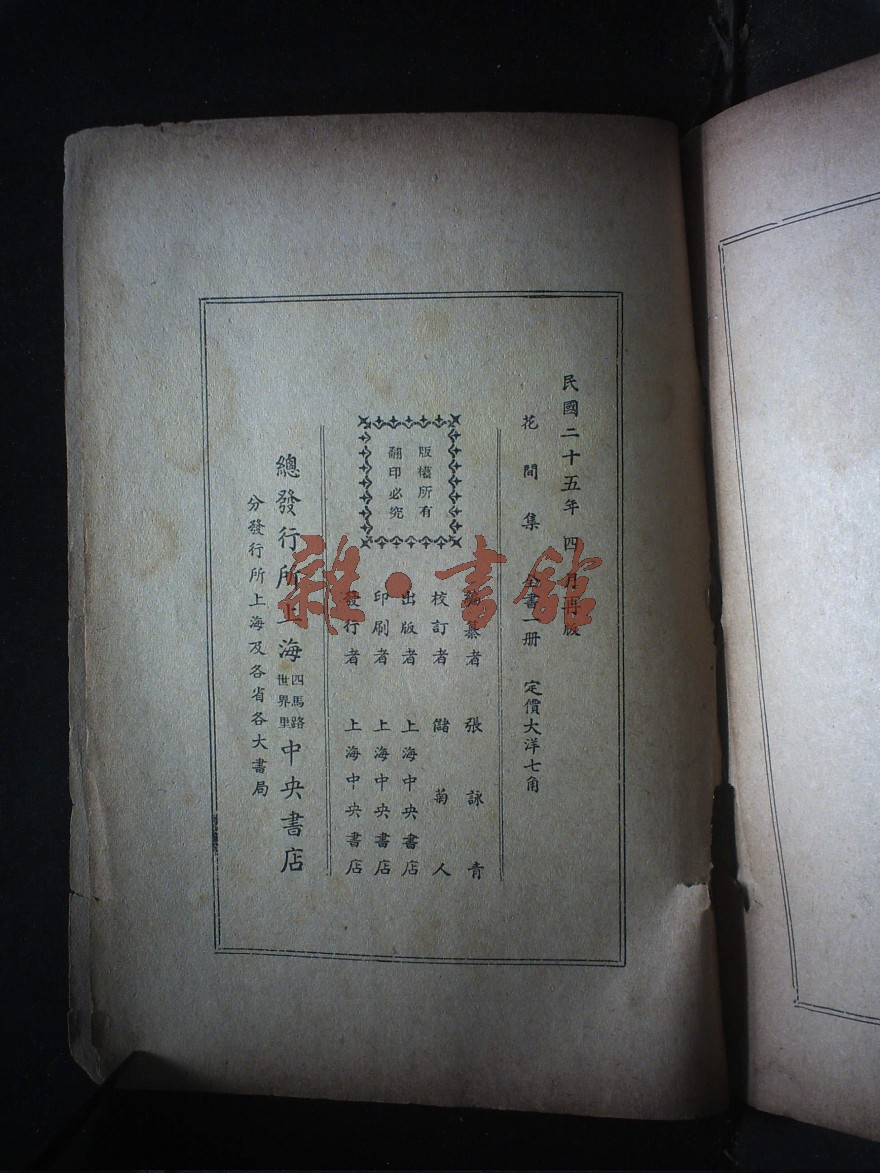 民國二十五年四月再版
花間集 全書一册 定價大洋七角
編纂者 張詠青
校訂者 儲菊人
出版者 上海中央書店
印刷者 上海中央書店
發行者 上海中央書店
版權所有
翻印必究
總發行所上海四馬路世界里中央書店
分發行所上海及各省各大書局
雜·書館